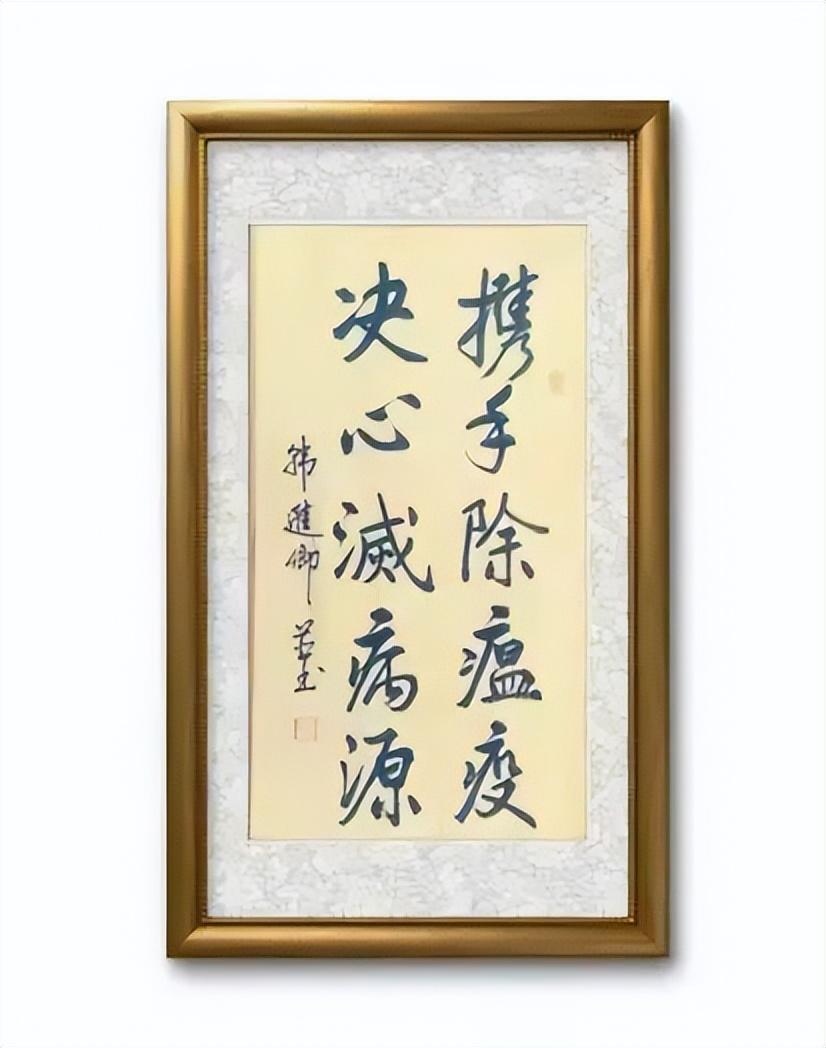 携手除瘟疫
决心滅病源
韩進卿